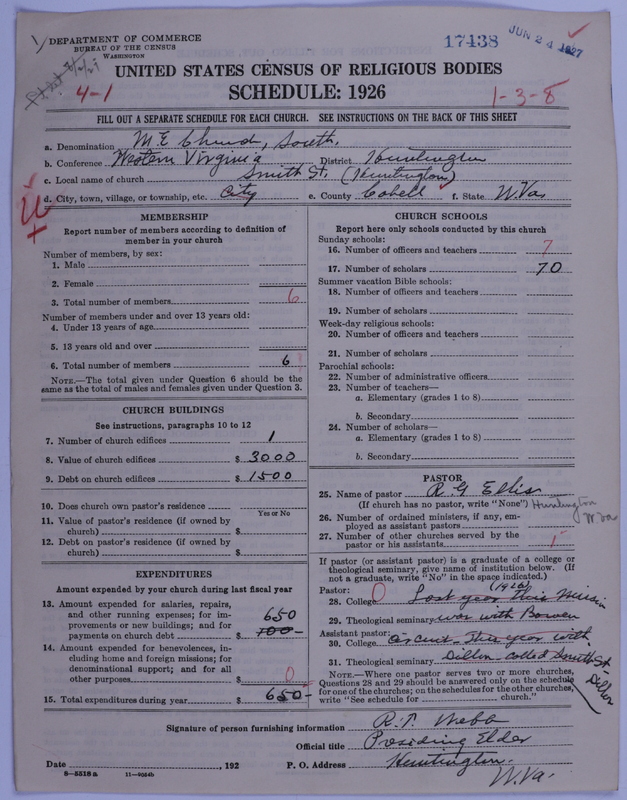 DEPARTMENT OF COMMERCE
BUREAU OF THE CENSUS
WASHINGTON
17438
JUN 24 1927
4-1
1-3-8
UNITED STATES CENSUS OF RELIGIOUS BODIES
SCHEDULE: 1926
FILL OUT A SEPARATE SCHEDULE FOR EACH CHURCH. SEE INSTRUCTIONS ON THE BACK OF THIS SHEET
a. Denomination M. E. Church, South.
b. Conference Western Virginia District Huntington
c. Local name of church Smith St. (Huntington)
d. City, town, village, or township, etc. City e. County Cabell f. State W. Va.
MEMBERSHIP
Report number of members according to definition of
member in your church
Number of members, by sex:
1. Male
2. Female
3. Total number of members 6
Number of members under and over 13 years old:
4. Under 13 years of age
5. 13 years old and over
6. Total number of members 6
NOTE.—The total given under Question 6 should be the
same as the total of males and females given under Question 3.
CHURCH BUILDINGS
See instructions, paragraphs 10 to 12
7. Number of church edifices 1
8. Value of church edifices $ 3000
9. Debt on church edifices $ 1500
10. Does church own pastor's residence
Yes or No
11. Value of pastor's residence (if owned by
church) $
12. Debt on pastor's residence (if owned by
church) $
EXPENDITURES
Amount expended by your church during last fiscal year
13. Amount expended for salaries, repairs,
and other running expenses; for im-
provements or new buildings; and for
payments on church debt $ 700 650
14. Amount expended for benevolences, in-
cluding home and foreign missions; for
denominational support; and for all
other purposes $ 0
15. Total expenditures during year $ 650
CHURCH SCHOOLS
Report here only schools conducted by this church
Sunday schools:
16. Number of officers and teachers 7
17. Number of scholars 70
Summer vacation Bible schools:
18. Number of officers and teachers
19. Number of scholars
Week-day religious schools:
20. Number of officers and teachers
21. Number of scholars
Parochial schools:
22. Number of administrative officers
23. Number of teachers—
a. Elementary (grades 1 to 8)
b. Secondary
24. Number of scholars—
a. Elementary (grades 1 to 8)
b. Secondary
PASTOR
25. Name of pastor R G Ellis
(If church has no pastor, write "None") Huntington W Va
26. Number of ordained ministers, if any, em-
ployed as assistant pastors
27. Number of other churches served by the
pastor or his assistants 1
If pastor (or assistant pastor) is a graduate of a college or
theological seminary, give name of institution below. (If
not a graduate, write "No" in the space indicated.)
Pastor: (1926)
28. College 0 Last year this mission
29. Theological seminary was with Bowen
Assistant pastor:
30. College Circuit. This year with
31. Theological seminary Dillon called Smith St - Dillon
NOTE.—Where one pastor serves two or more churches,
Questions 28 and 29 should be answered only on the schedule
for one of the churches; on the schedules for the other churches,
write "See schedule for church."
Signature of person furnishing information R. T. Webb
Official title Presiding Elder
Date , 192 P. O. Address Huntington.
W. Va.
8—5518a 11—9054b